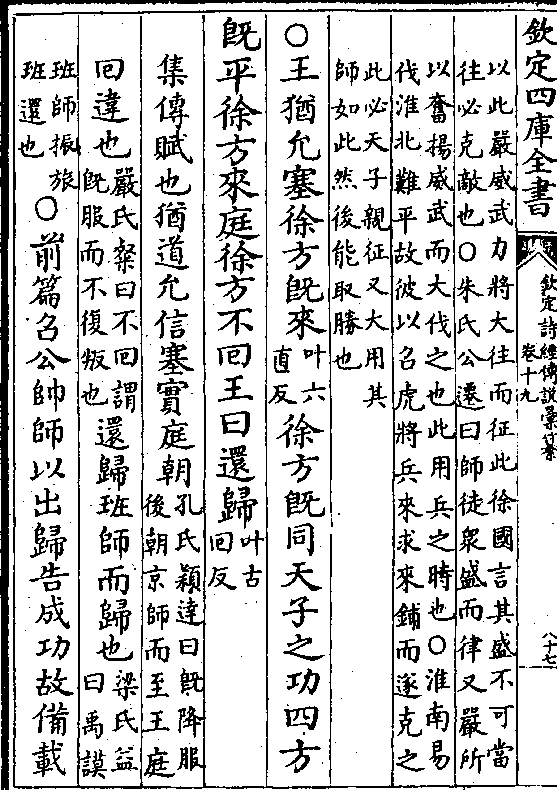 欽定四庫全書
欽定詩經傳說彙纂
卷十九
八十七
以此嚴威武力將大往而征此徐國言其盛不可當
往必克敵也○朱氏公遷曰師徒衆盛而律又嚴所
以奮揚威武而大伐之也此用兵之時也○淮南易
伐淮北難平故彼以召虎將兵來求來鋪而遂克之
此必天子親征又大用其
師如此然後能取勝也
○王猶允塞徐方旣來叶六
直反
徐方旣同天子之功四方
旣平徐方來庭徐方不回王曰還歸叶古
回反
集傳賦也猶道允信塞實庭朝孔氏穎達曰旣降服
後朝京師而至王庭
回違也嚴氏粲曰不回謂
旣服而不復叛也
還歸班師而歸也梁氏益
曰禹謨
班師振旅
班還也
○前篇召公帥師以出歸告成功故備載